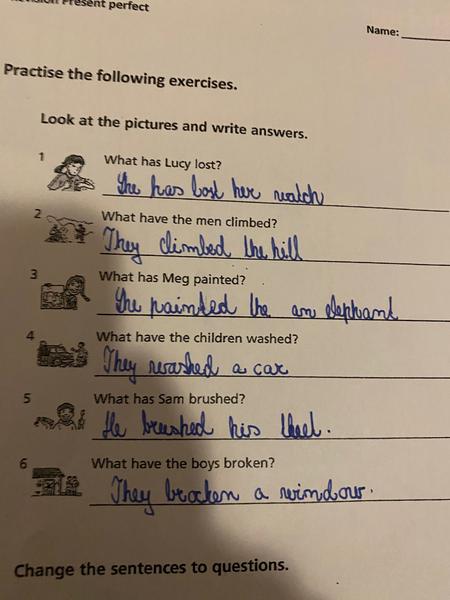 Revision Present perfect
Name:
Practise the following exercises.
Look at the pictures and write answers.
1 What has Lucy lost?
She has lost her watch
2 What have the men climbed?
They climbed the hill
3 What has Meg painted?
She painted the an elephant
4 What have the children washed?
They washed a car
5 What has Sam brushed?
He brushed his
6 What have the boys broken?
They brocken a window.
Change the sentences to questions.